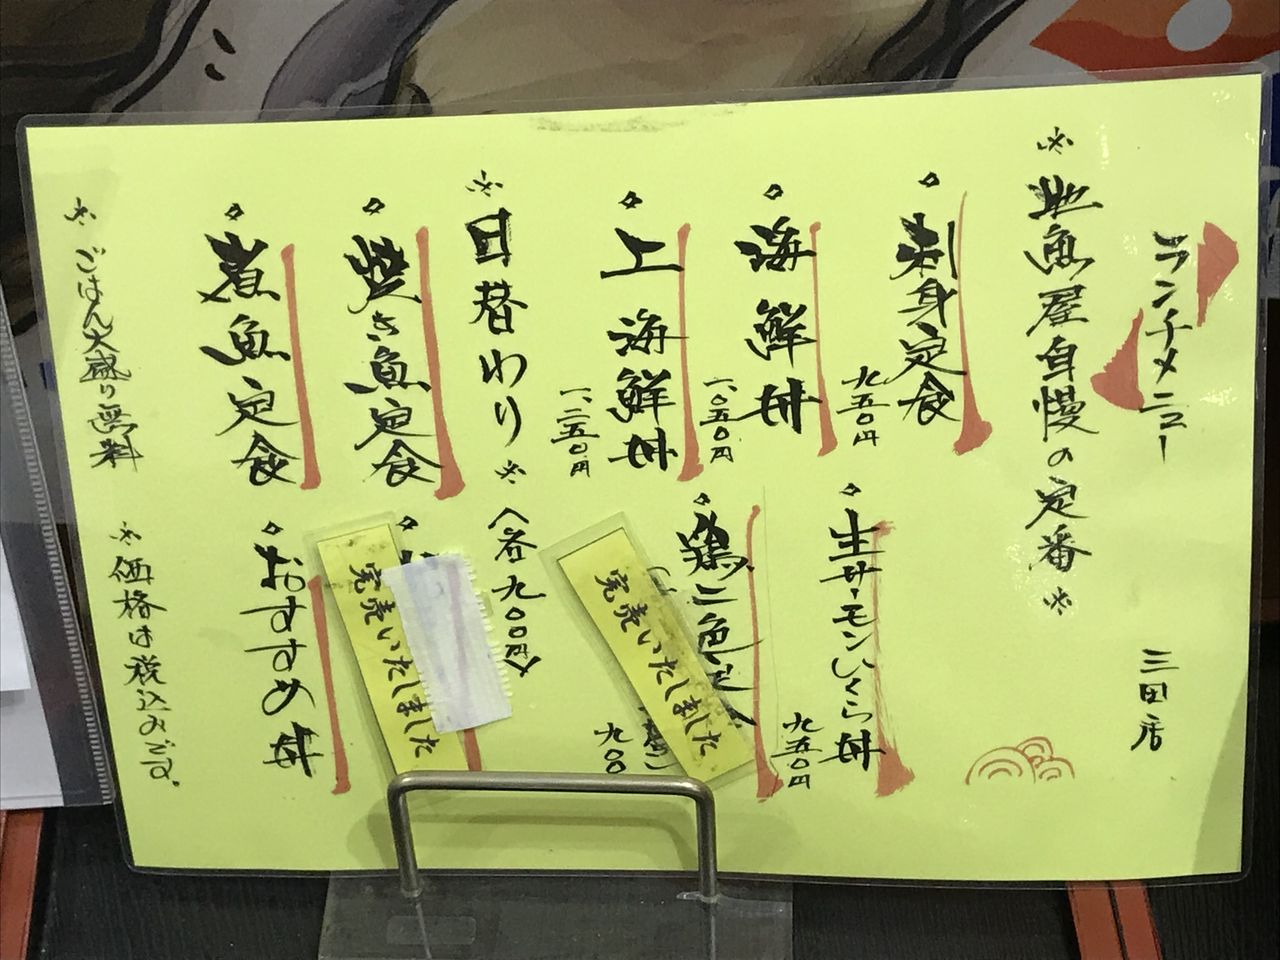 ランチメニュー 三田店
※地魚屋自慢の定番※
・刺身定食 九五〇円
・海鮮丼 一、〇五〇円
・上海鮮丼 一、二五〇円
・生サーモンいくら丼 九五〇円
・鶏二色 九〇〇
完売いたしました
※日替わり※〈各九〇〇円〉
・焼き魚定食
・煮魚定食
完売いたしました
・おすすめ丼
※ごはん大盛り無料
※価格は税込みです。